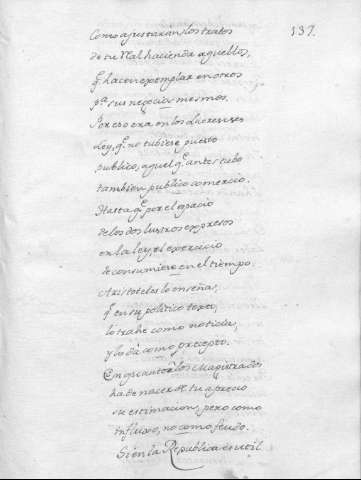 137.
Como ajustarán los tratos
de tu Real hacienda aquellos,
q̃ hacen exemplar en otros
pª sus negocios mesmos.
Por eso era en los
Ley, q̃ no tubiese puesto
publico, aquel q̃ antes tubo
tambien publico comercio.
Hasta q̃ por el espacio
de los dos lustros expresos
en la ley, el exercicio
de consumiese en el tiempo
Aristoteles lo enseña,
q̃ en su politico texto,
lo trahe como noticia,
y lo dà como precepto.
En quanto à los Magistrados
ha de nacer de tu aprecio
su estimacion, pero como
influxo, no como feudo.
Si en la Republica es util